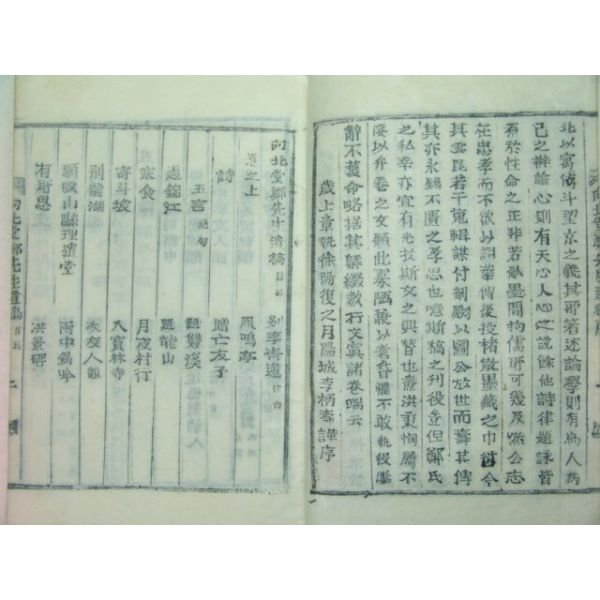 北以寓海斗望京之義其所著述論學則有爲人爲
己之辨論心則有天心人心之說餘他詩律題詠皆
有於性命之正非若
在忠孝而不欲以詞華傳後投楮散墨藏之巾笥今
其雲昆若干寬輯謀付剞劂以圖公於世而壽其傳
其亦永錫不匱之孝思也噫斯稿之刊後豈但鄭氏
之私幸亦宜有光於斯文之興替也耋洪秉恂屬不
佞以弁卷之文顧此寡陋兼以耆昏懼不敢執役屢
辭不獲命略括其槩綴數行文寘諸卷端云
歲上章執徐陽復之月陽城李柄壽謹序
向北堂鄭先生遺稿目錄
卷之上
詩
五言絶句
過錦江
寒食
寄斗坡
別龍湖
題咸山縣理遣堂
有所思
別李海蓮
鳳鳴亭
贈亡友子
題雙溪
題龍山
月夜村行
入寶林寺
次友人韻
雨中偶吟
洪景碑
向北堂鄭先生遺稿